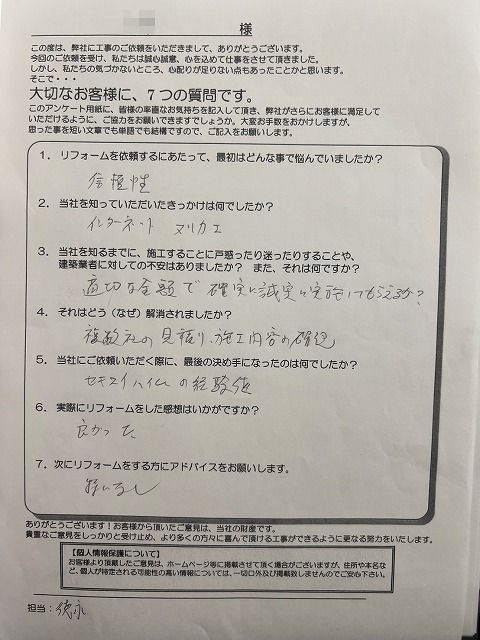 様
この度は、弊社に工事のご依頼をいただきまして、ありがとうございます。
今回のご依頼を受け、私たちは誠心誠意、心を込めて仕事をさせて頂きました。
しかし、私たちの気づかないところ、心配りが足りない点もあったことかと思います。
そこで・・・
大切なお客様に、7つの質問です。
このアンケート用紙に、皆様の率直なお気持ちを記入して頂き、弊社がさらにお客様に満足して
いただけるように、ご協力をお願いできますでしょうか。大変お手数をおかけしますが、
思った事を短い文章でも単語でも結構ですので、ご記入をお願いします。
1．リフォームを依頼するにあたって、最初はどんな事で悩んでいましたか？
2．当社を知っていただいたきっかけは何でしたか？
インターネット ヌリカエ
3．当社を知るまでに、施工することに戸惑ったり迷ったりすることや、
建築業者に対しての不安はありましたか？ また、それは何ですか？
適切な金額で確実に誠実に実施してもらえるか？
4．それはどう（なぜ）解消されましたか？
複数社の見積り、施工内容の確認
5．当社にご依頼いただく際に、最後の決め手になったのは何でしたか？
セキスイハイムの経験値
6．実際にリフォームをした感想はいかがですか？
良かった
7．次にリフォームをする方にアドバイスをお願いします。
ありがとうございます！お客様から頂いたご意見は、当社の財産です。
貴重なご意見をしっかりと受け止め、より多くの方々に喜んで頂ける工事ができるように更なる努力をいたします。
【個人情報保護について】
お客様より頂戴したご意見は、ホームページ等に掲載させて頂く場合がございますが、住所や本名な
ど、個人が特定される可能性の高い情報については、一切口外及び掲載致しませんのでご安心下さい。
担当：徳永